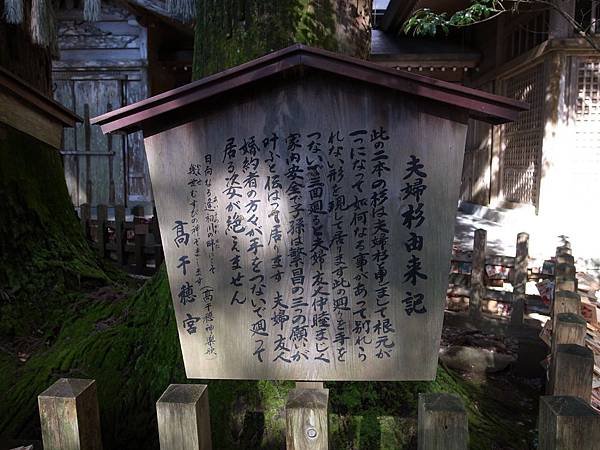 夫婦杉由来記
此の二本の杉は夫婦杉と申しまして根元が
一つになって如何なる事があって別れら
れない形を現して居ります此の廻りを手を
つないで三回廻ると夫婦、友人仲睦まじく
家内安全で子孫は繁昌の三つの願いが
叶ふと伝はって居ります 夫婦、友人
婚約者の方々が手をつないで廻って
居る姿が絶えません
日向なる逢初川の畔にこそ
幾世むすびの神ぞまします (高千穂神楽歌)
高千穂宮